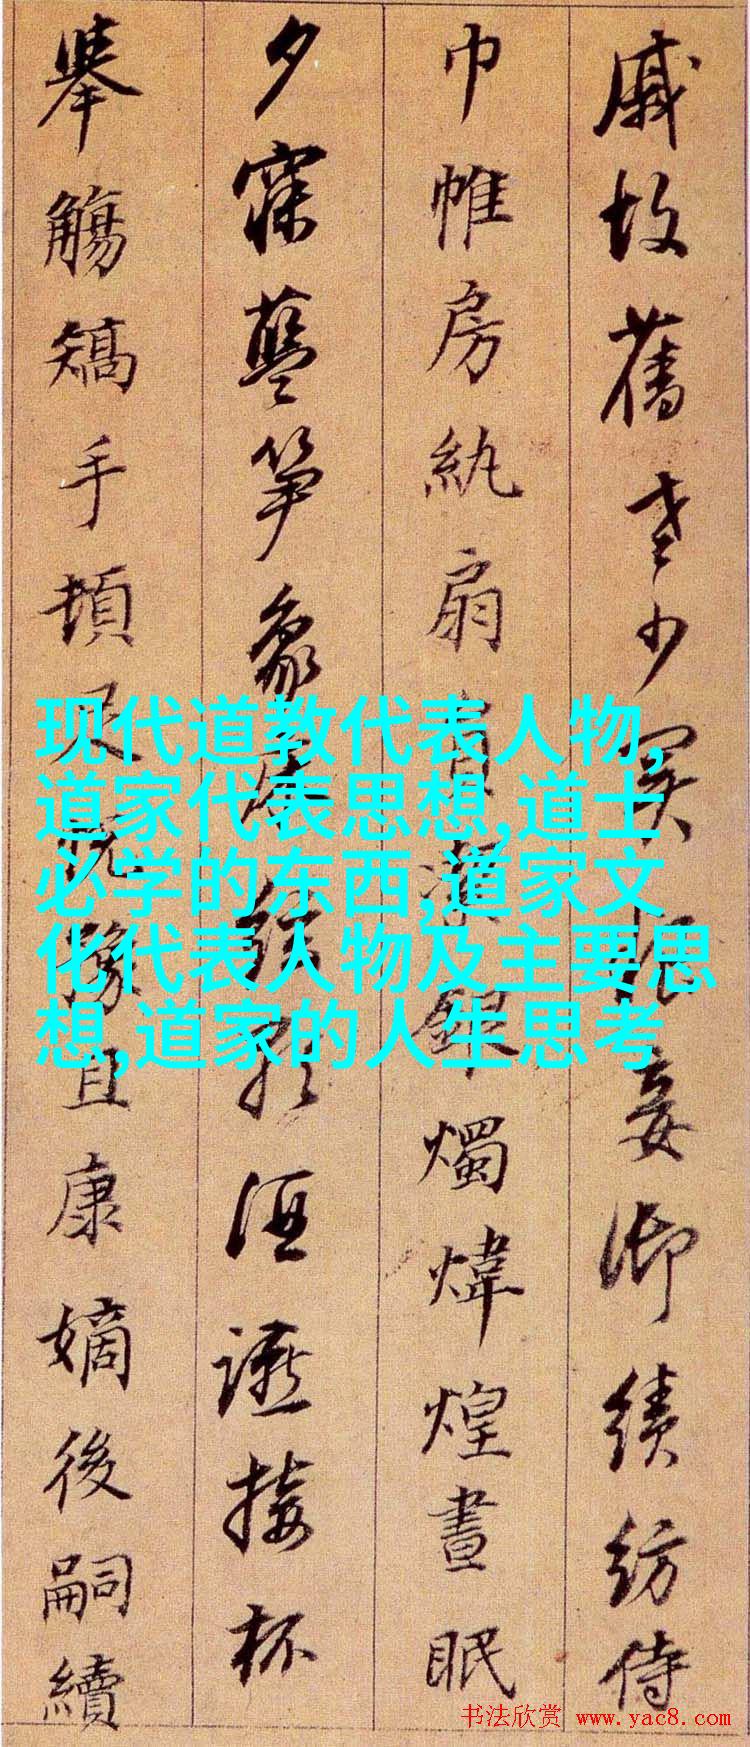 戚故舊老少異粮妾御績紡侍
巾帷房紈扇員潔銀燭煒煌晝眠
夕寐藍笋象床絃歌酒讌接杯
舉觴矯手頓足悅豫且康嫡後嗣續
现代道教代表人物,
道家代表思想,道士
必学的东西,道家文
化代表人物及主要思
想,道家的人生思考
书法欣赏 www.yac8.com